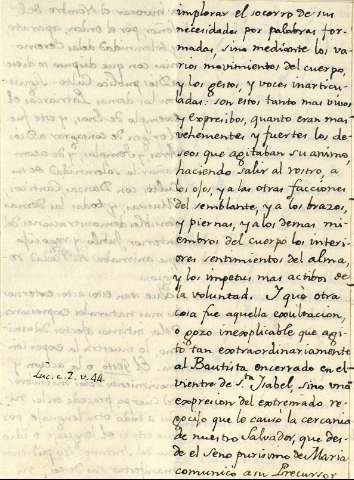 implorar el socorro de sus
necesidades por palabras for-
madas, sino mediante los va-
rios movimientos del cuerpo,
y los gestos, y voces inarticu-
ladas: son estos tanto mas vivos
y expresibos, quanto eran mas
vehementes y fuertes los de-
seos que agitaban su animo,
haciendo salir al rostro, a
los ojos, y a las otras facciones
del semblante, y a los brazos,
y piernas, y a los demas mi-
embros del cuerpo los interi-
ores sentimientos del alma,
y los impetus mas actibos de
la voluntad. I què otra
cosa fue aquella exultacion,
o gozo inexplicable que agi-
tò tan extraordinariamente
al Bautista encerrado en el
vientre de S.ta Isabel, sino vna
exprecion del extremado re-
gocijo que le causò la cercania
de nuestro Salvador, que des-
de el seno purisimo de Maria
comunicò a su Precursor
Luc. c. 1. v. 44